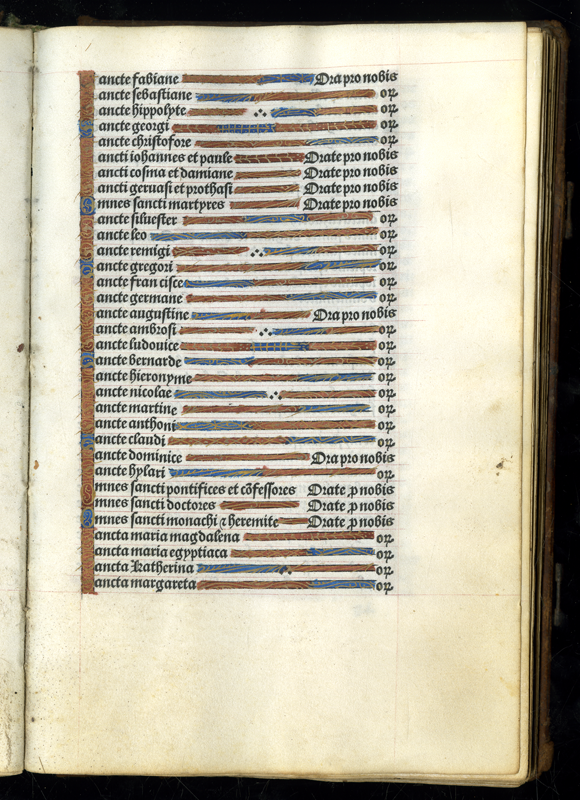 Sancte fabiane Ora pro nobis
Sancte sebastiane oꝝ
Sancte hippolyte oꝝ
Sancte georgi oꝝ
Sancte christofore oꝝ
Sancti iohannes et paule Orate pro nobis
Sancti cosma et damiane Orate pro nobis
Sancti geruasi et prothasi Orate pro nobis
Omnes sancti martyres Orate pro nobis
Sancte siluester oꝝ
Sancte leo oꝝ
Sancte remigi oꝝ
Sancte gregori oꝝ
Sancte francisce oꝝ
Sancte germane oꝝ
Sancte augustine Ora pro nobis
Sancte ambrosi oꝝ
Sancte ludouice oꝝ
Sancte bernarde oꝝ
Sancte hieronyme oꝝ
Sancte nicolae oꝝ
Sancte martine oꝝ
Sancte anthoni oꝝ
Sancte claudi oꝝ
Sancte dominice Ora pro nobis
Sancte hylari oꝝ
Omnes sancti pontifices et cõfessores Orate ꝓ nobis
Omnes sancti doctores Orate ꝓ nobis
Omnes sancti monachi ⁊ heremite Orate ꝓ nobis
Sancta maria magdalena oꝝ
Sancta maria egyptiaca oꝝ
Sancta Katherina oꝝ
Sancta margareta oꝝ